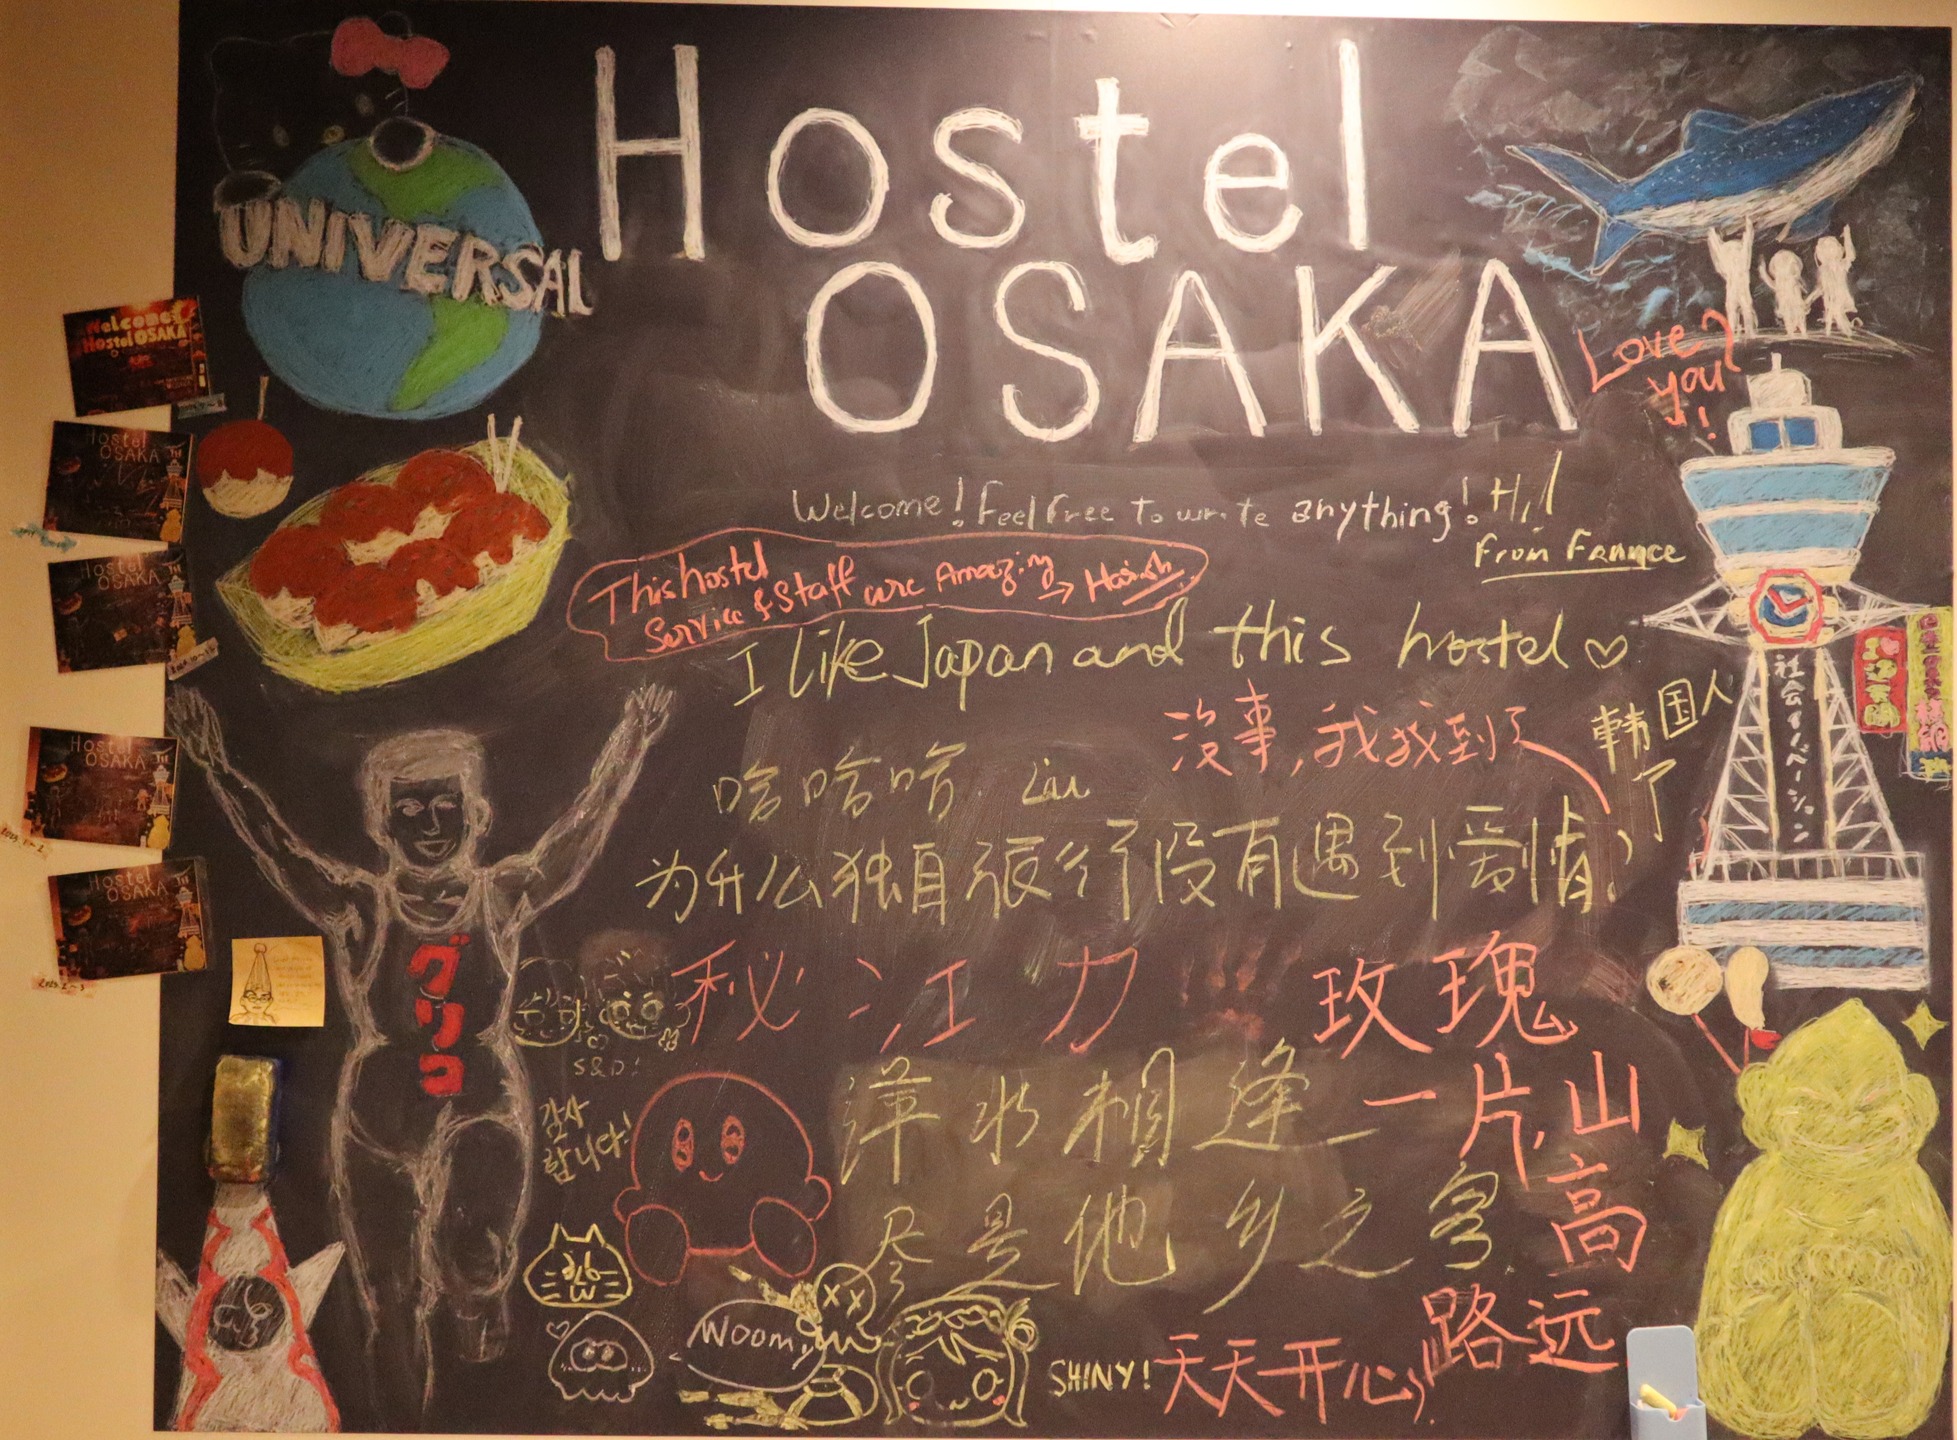 UNIVERSAL
Hostel
OSAKA
Love
you!
Welcome! Feel Free To write anything! Hi!
From Frannce
This hostel
Service & Staff are Amazing →
I like Japan and this hostel ♡
没事,我找到了
韩国人
哈哈哈
为什么独自旅行没有遇到爱情?
秘江力 玫瑰
S&D!
감사
합니다!
萍水相逢 一片,山
尽是他乡之客 高
路远
天天开心
SHINY!
Woomy
グリコ
社会イノベーション
Welcome
Hostel OSAKA
Hostel
OSAKA
Hostel
OSAKA
Hostel
OSAKA
Hostel
OSAKA